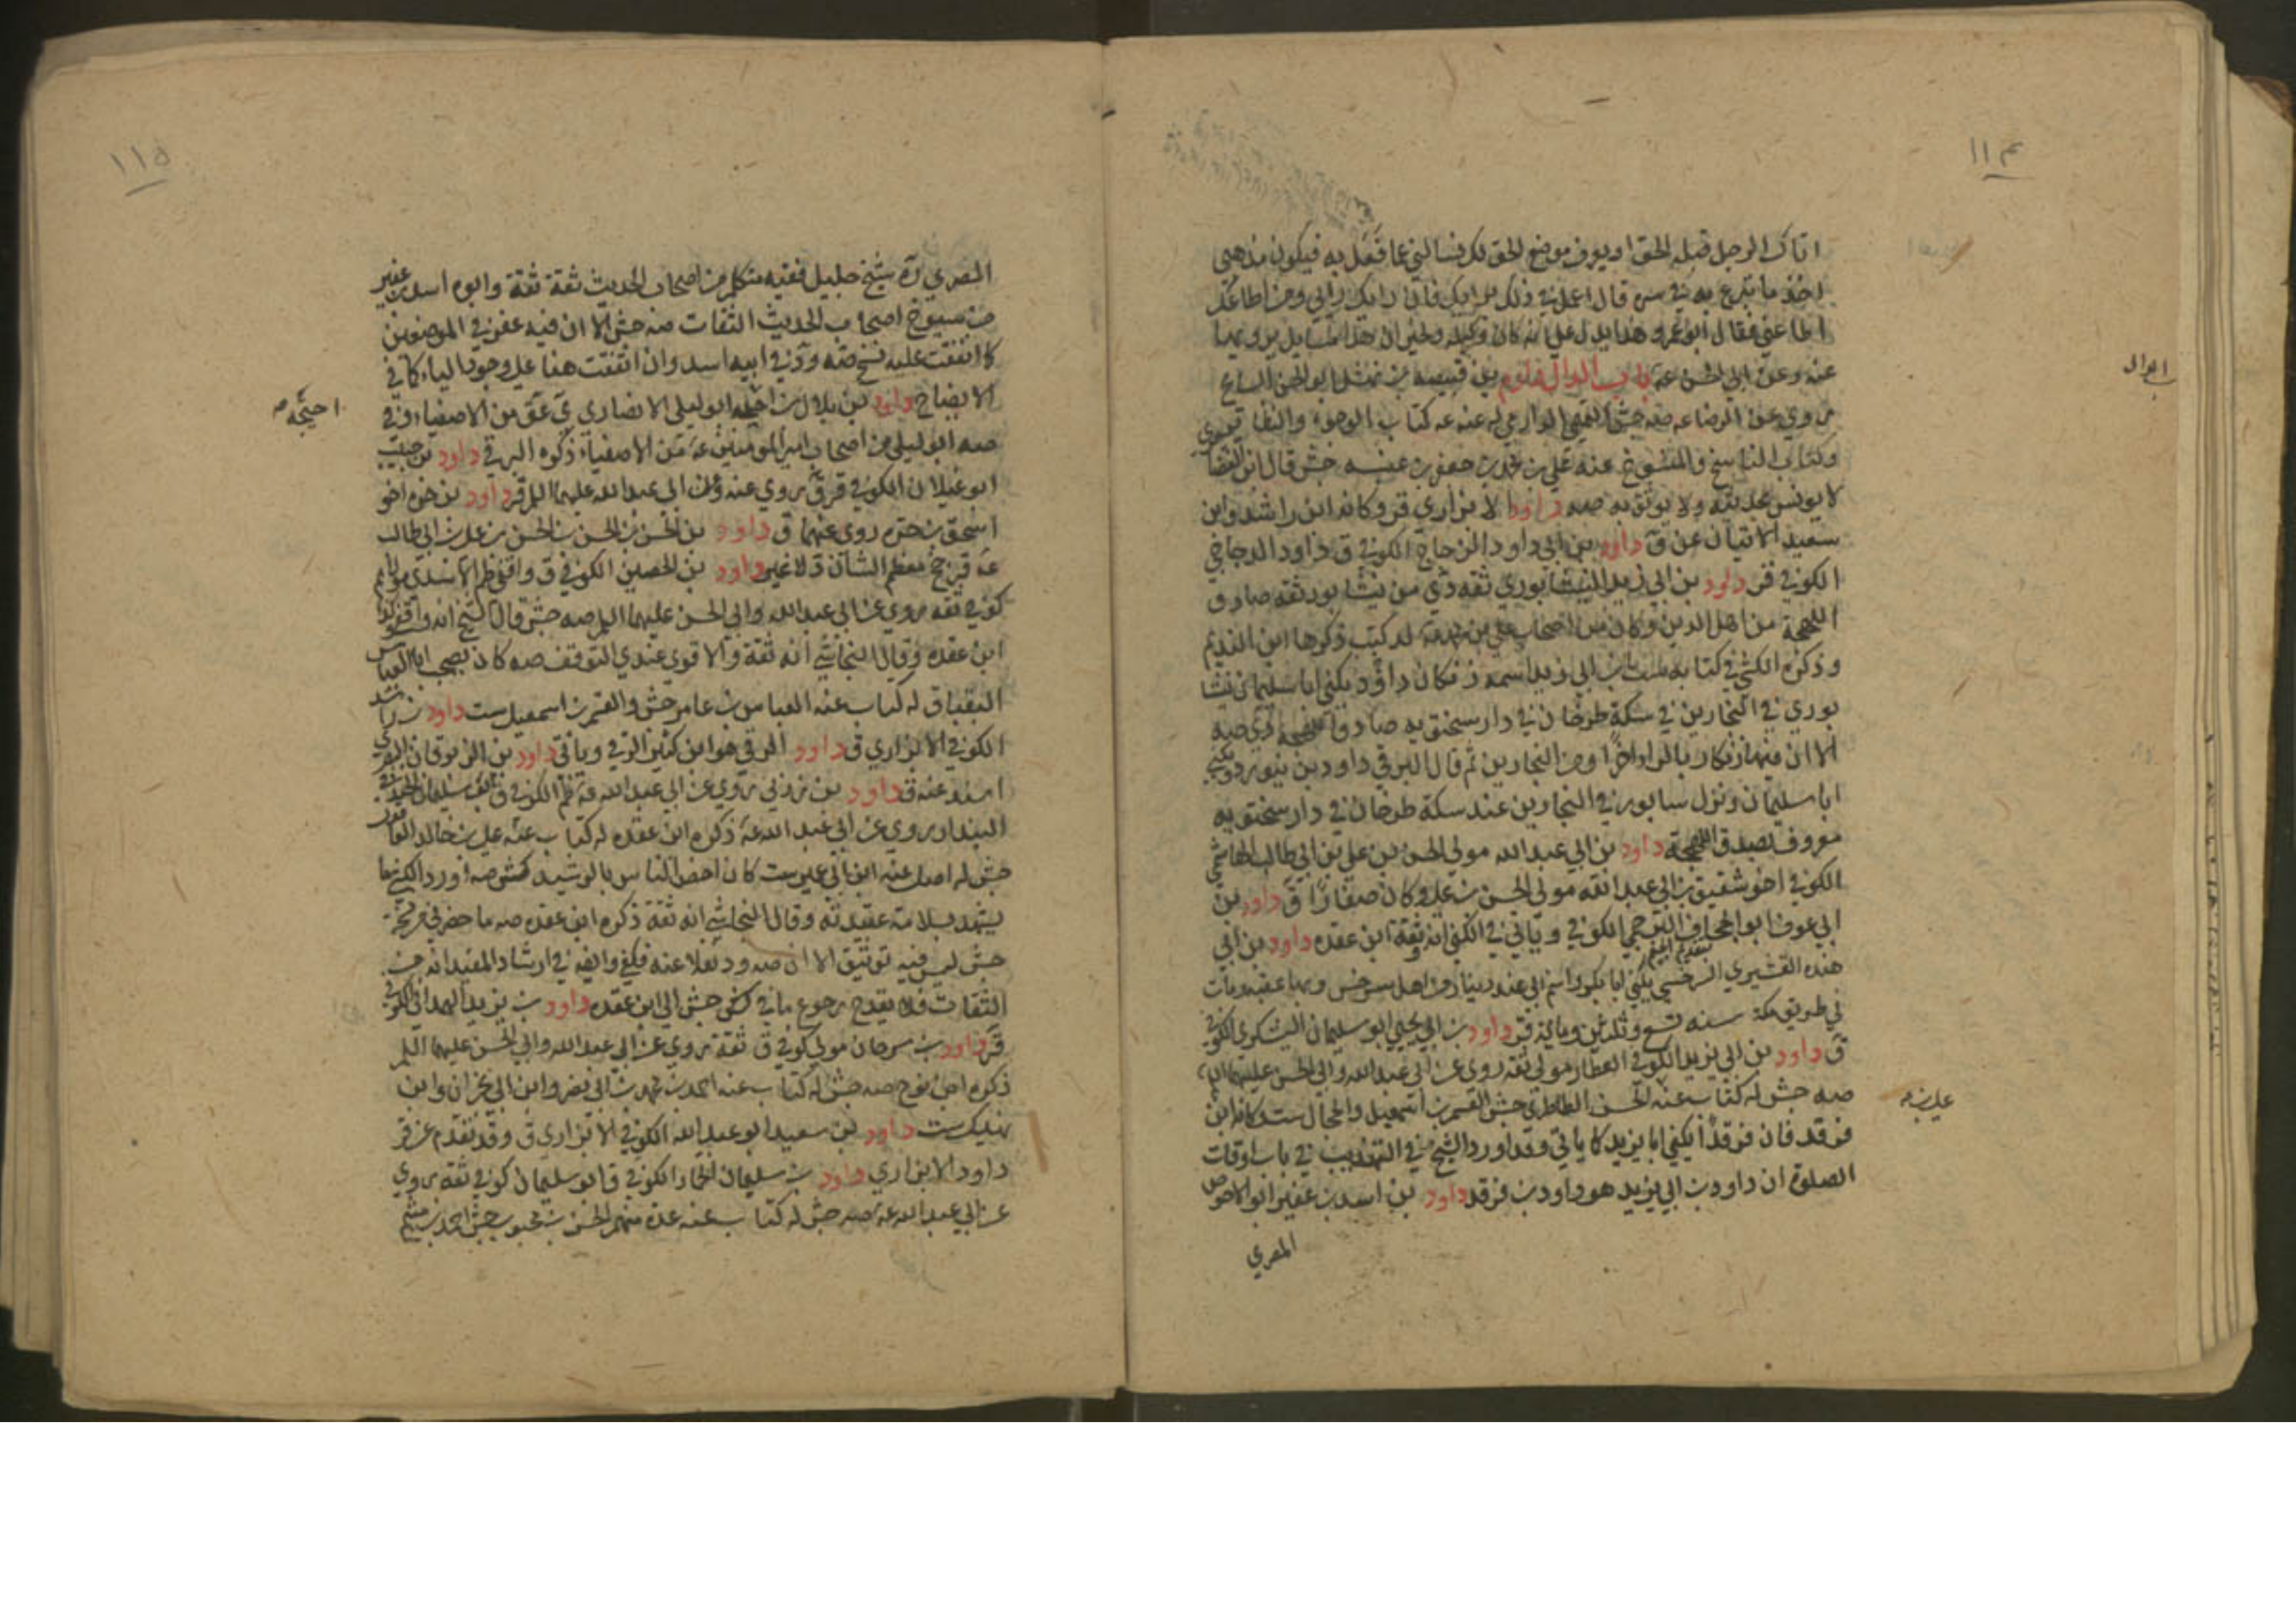 ١١٤
اتاك الرجل قبله الحق او يعرف موضع الحق لك فسالني عما فعل به فيكون مذهبي
اخذ ما تبرع به في سره قال اعمل في ذلك برايك فان رايك رايي ومن اطاعك
اطاعني فقال ابو عمرو هذا يدل على انه كان وكيله ولخيران هذا مسايل يرويها
عنه وعن ابي الحسن عه باب الدال دارم بن قبيصه بن نهشل ابو الحسن السايح
ابوال
روي عن الرضا عه صه جش التميمي الدارمي له عنه عه كتاب الوجوه والنظاير
وكتاب الناسخ والمنسوخ عنه علي بن محمد بن جعفر بن عنبسه جش قال ابن الغضا
لا يونس بحديثه ولا يوثق به صه داود الابزاري قر وكانه ابن راشد وابن
سعيد الاتيان عن ق داود بن ابي داود الزجاج الكوفي ق داود الدجاجي
الكوفي قر داود بن ابي زيد النيشابوري ثقه دي من نيشابور ثقه صادق
اللهجة من اهل الدين وكان من اصحاب علي بن محمد له كتب ذكرها ابن النديم
وذكره الكشي في كتابه ست بن ابي زيد اسمه زنكان داود يكنى ابا سليمان نيشا
بوري في النجارين في سكة طرخان في دار سختويه صادق اللهجة دي صه
الا ان فيها زنكار بالراء اخرا ومن النجارين ثم قال البرقي داود بن بنيورد ويكنى
ابا سليمان ونزل سابور في النجارين عند سكة طرخان في دار سختويه
معروف بصدق اللهجة داود بن ابي عبد الله مولي الحسن بن علي بن ابي طالب الهاشمي
الكوفي اخو شقيق بن ابي عبد الله مولى الحسن بن علي وكان صفارا ق داود بن
ابي عوف ابو الجحاف البرجمي الكوفي وياتي في الكنى انه ثقة ابن عقده داود بن ابي
بتقديم الجيم
هنده القشيري السرخسي يكنى ابا بكر واسم ابي هند دينار من اهل سرخس وبها عقبه ومات
في طريق مكة سنه تسع وثلثين ومايه قر داود بن ابي يحيي ابو سليمان اليشكري الكوفي
ق داود بن ابي يزيد الكوفي العطار مولى ثقه روى عن ابي عبد الله وابي الحسن عليهما السلم
صه جش له كتاب عنه الحسن الطاطري جش القسم بن اسمعيل والحجال ست وكانه ابن
علي بن م
فرقد فان فرقدا يكنى ابا يزيد كما ياتي وقد اورد الشيخ في التهذيب في باب اوقات
الصلوة ان داود بن ابي يزيد هو داود بن فرقد داود بن اسد بن عفير ابو الاحوص
المصري
١١٥
المصري ره شيخ جليل فقيه متكلم من اصحاب الحديث ثقة ثقة وابوه اسد بن عفير
من شيوخ اصحاب الحديث الثقات صه جش الا ان فيه عفر في الموضعين
كما اتفقت عليه نسخ صه ود في ابيه اسد وان اتفقت هنا على وجود الياء كما في
الايضاح داود بن بلال بن احيحه ابو ليلى الانصاري ي عق من الاصفياء وفي
احيحه صه
صه ابو ليلى من اصحاب امير المومنين عه من الاصفياء ذكره البرقي داود بن حبيب
ابو غيلان الكوفي قر ق روي عنه وعن ابي عبد الله عليهما السلم قر داود بن حره اخو
اسحق بن حره روى عنهما ق داود بن الحسن بن الحسن بن الحسن بن علي بن ابي طالب
عه قر جخ معظم الشان د لا غير داود بن الحصين الكوفي ق واقفي ظم الاسدي مولاهم
كوفي ثقه روي عن ابي عبد الله وابي الحسن عليهما السلم صه جش قال الشيخ انه واقفي وكذا
ابن عقده وقال النجاشي انه ثقة والاقوى عندي التوقف صه كان يصحب ابا العباس
البقباق له كتاب عنه العباس بن عامر جش والقسم بن اسمعيل ست داود بن راشد
الكوفي الابزاري ق داود الرقي هو ابن كثير الرقي وياتي داود بن الزبرقان البصري
اسند عنه ق داود بن زربي روي عن ابي عبد الله عه ظم الكوفي ق ابو سليمان الخندفي
البندار روي عن ابي عبد الله عه ذكره ابن عقده له كتاب عنه علي بن خالد العاقولي
جش له اصل عنه ابن ابي عمير ست كان اخص الناس بالرشيد كش صه اورد الكشي ما
يشهد بسلامة عقيدته وقال النجاشي انه ثقة ذكره ابن عقده صه ما حضرني من نسخة
جش ليس فيه توثيق الا ان صه ود نقلا عنه فكفى وايضه في ارشاد المفيد انه من
الثقات فلا يقدح رجوع ما في جش الى ابن عقده داود بن يزيد الهمداني الكوفي
ق داود بن سرحان مولي كوفي ق ثقة روي عن ابي عبد الله وابي الحسن عليهما السلم
ذكره ابن نوح صه جش له كتاب عنه احمد بن محمد بن ابي نصر وابن ابي نجران وابن
نهيك ست داود بن سعيد ابو عبد الله الكوفي الابزاري ق وقد تقدم عن قر
داود الابزاري داود بن سليمان الحمار الكوفي ق ابو سليمان كوفي ثقه روي
عن ابي عبد الله عه صه جش له كتاب عنه عدة منهم الحسن بن محبوب جش احمد بن ميثم